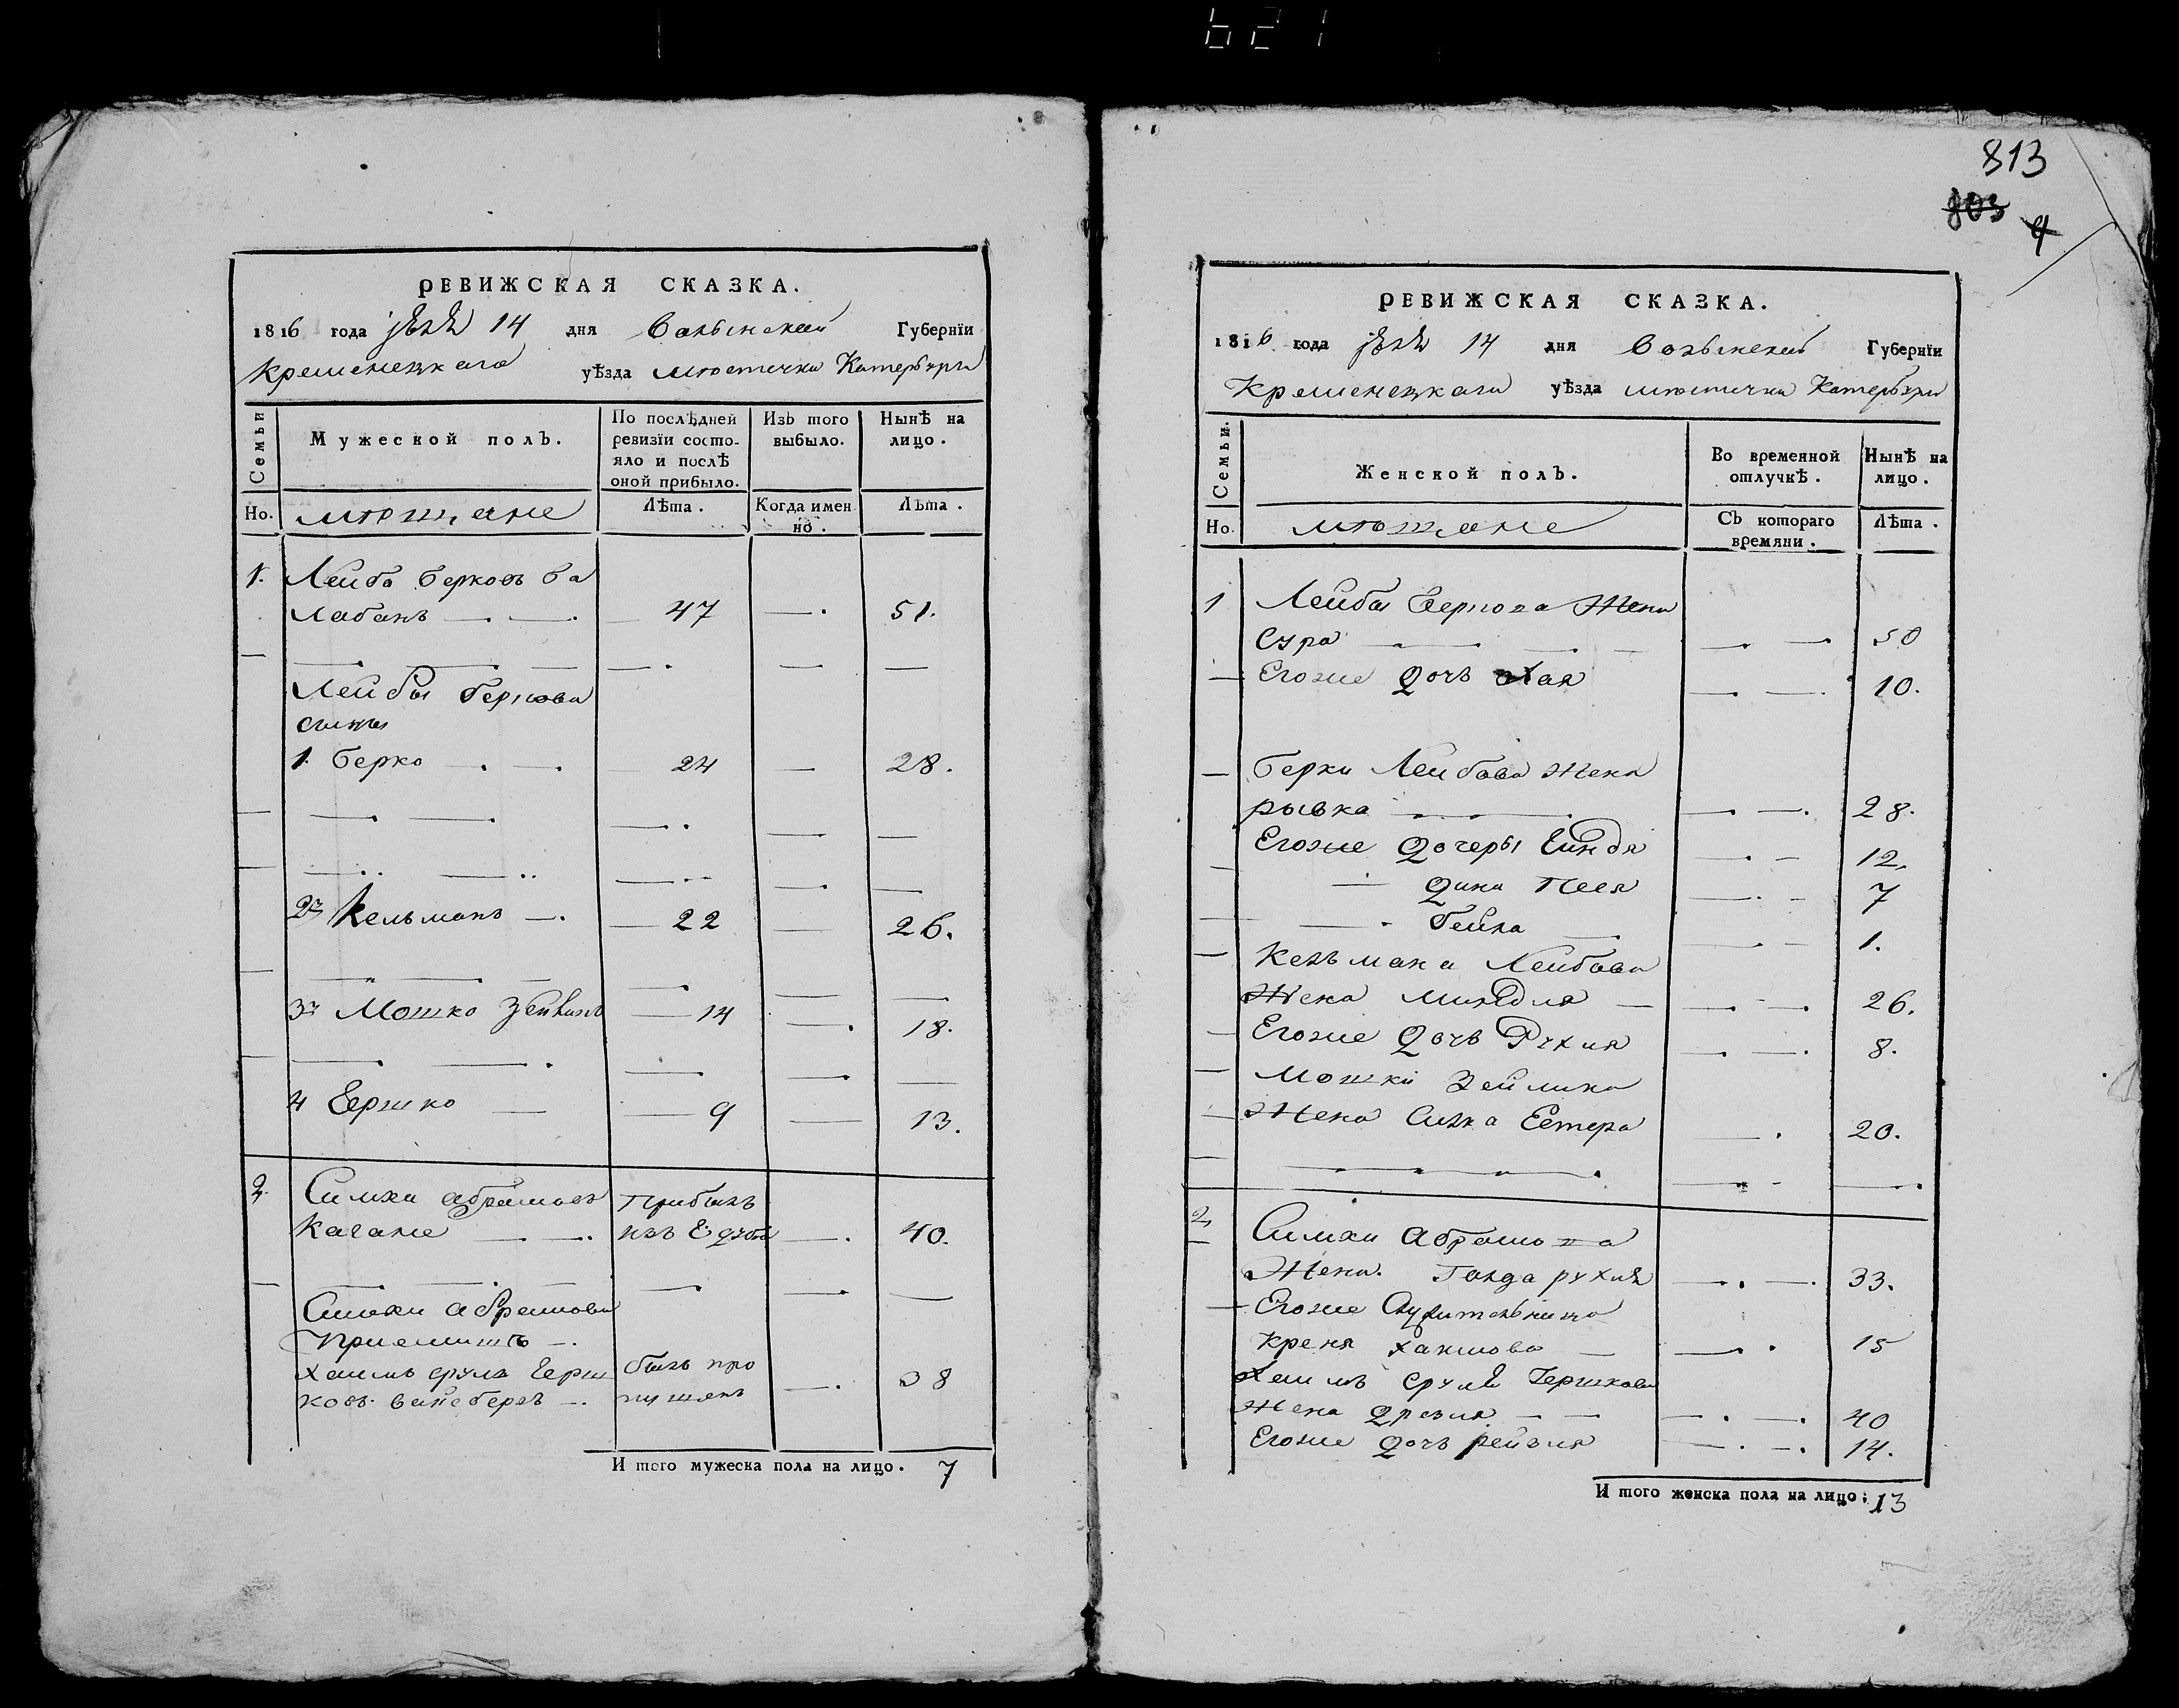 621
РЕВИЖСКАЯ СКАЗКА.
1816 года 14 дня Волынской Губернїи
Кременецкаго уѣзда мюстички Катербурга
Семьи
Мужеской полъ.
По послѣдней ревизїи состо-
яло и послѣ
оной прибыло.
Изъ того
выбыло.
Нынѣ на
лицо.
Но. мющане
Лѣта.
Когда имен
но.
Лѣта.
1. Лейба Берковъ Ба
лабанъ 47 51.
Лейбы Беркова
сыны
1. Берко 24 28.
2й Кельманъ 22 26.
3й Мошко Зейликъ 14 18.
4 Ершко 9 13.
2. Симха Абрамовъ Прибылъ
Кагане изъ 40.
Симхи Абрамова
приемышъ
Хаимъ Сруль Герш былъ про
ковъ Вайсбергъ пущенъ 38
И того мужеска пола на лицо. 7
813
803 4
РЕВИЖСКАЯ СКАЗКА.
1816 года 14 дня Волынской Губернїи
Кременецкаго уѣзда мюстички Катербурга
Семьи.
Женской полъ.
Во временной
отлучкѣ.
Нынѣ на
лицо.
Но. мющане
Съ котораго
времяни.
Лѣта.
1 Лейбы Беркова Жена
Сура 50
Егоже Дочь Хая 10.
Берки Лейбова Жена
Рывка 28.
Егоже Дочеры Гиндя 12.
Дина Песя 7
Бейла 1.
Кельмана Лейбова
Жена Миндля 26.
Егоже Дочь Рухля 8.
Мошки Зейлика
Жена Силка Естера 20.
2, Симхи Абрамова
Жена. Голда Рухля 33.
Егоже Служительница
Крейня Хаимова 15
Хаимъ Сруля Гершкова
Жена Дрезля 40
Егоже Дочь Рейзля 14.
И того женска пола на лицо: 13